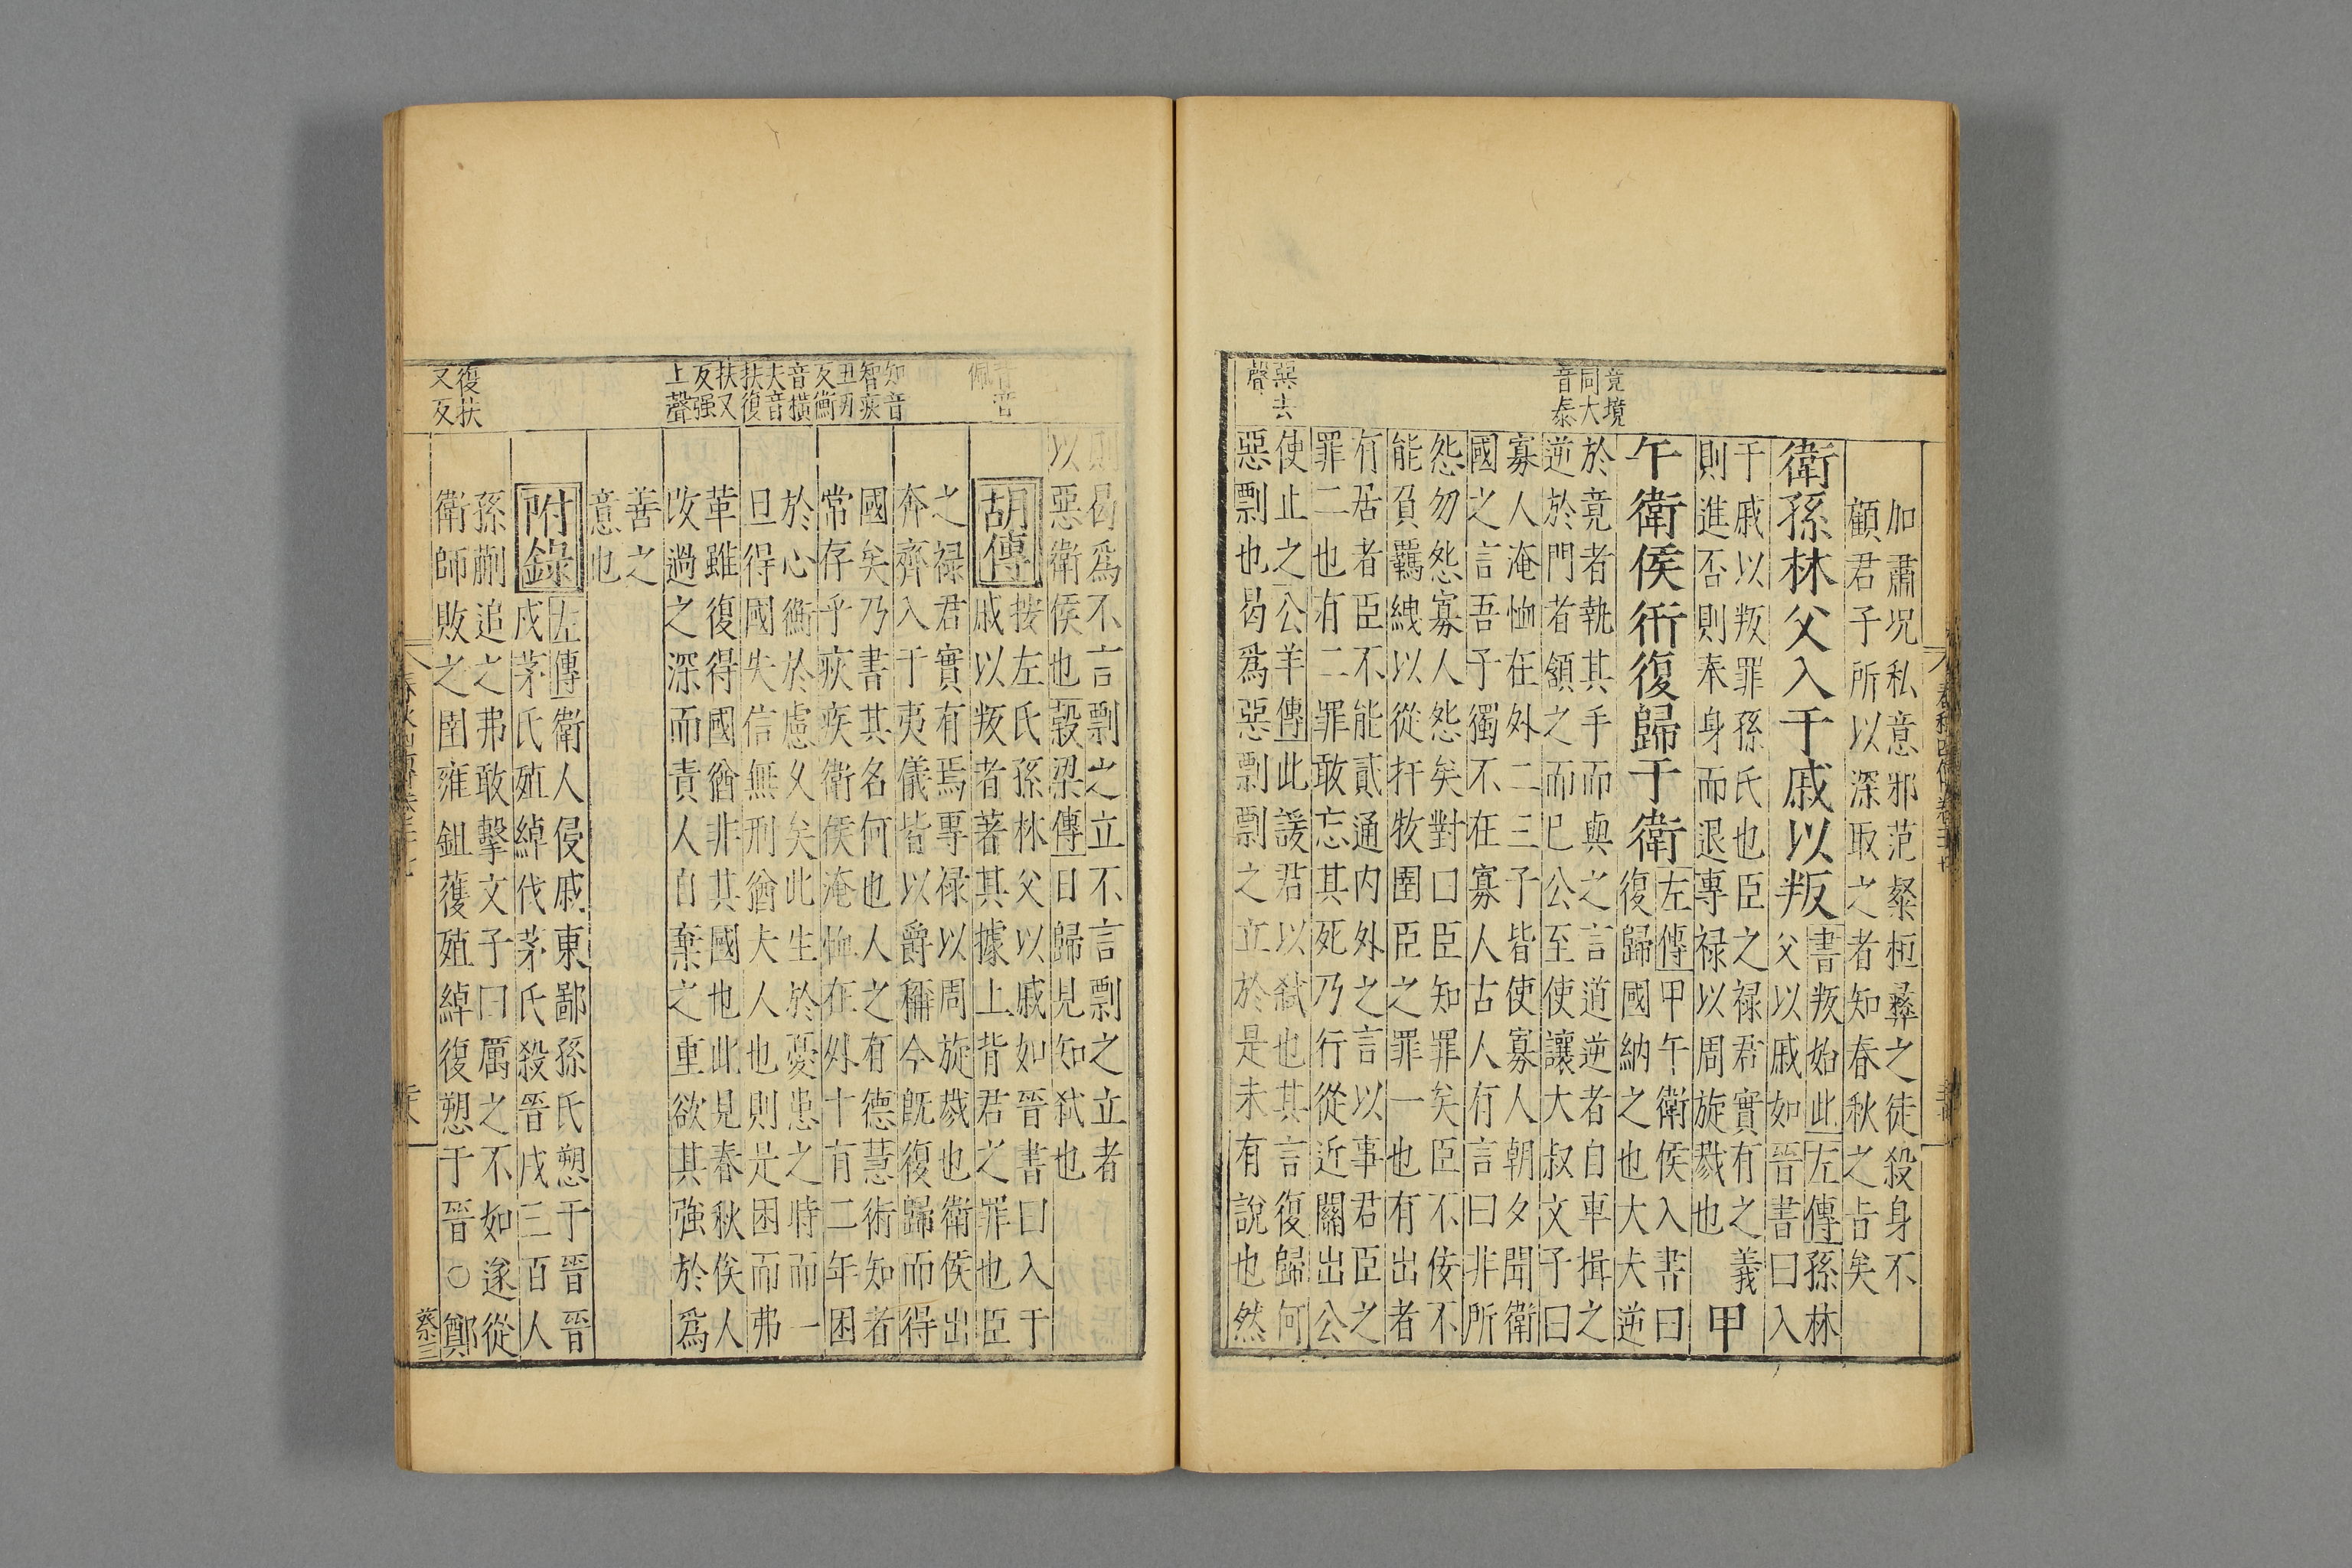 加肅況私意邪范粲桓彞之徒殺身不
顧君子所以深取之者知春秋之旨矣
衛孫林父入于戚以叛
書叛始此左傳孫林
父以戚如晉書曰入
于戚以叛罪孫氏也臣之禄君實有之義
則進否則奉身而退專禄以周旋戮也
甲
午衛侯衎復歸于衛
左傳甲午衛侯入書曰
復歸國納之也大夫逆
於竟者執其手而與之言道逆者自車揖之
逆於門者頷之而已公至使讓大叔文子曰
寡人淹恤在外二三子皆使寡人朝夕聞衛
國之言吾子獨不在寡人古人有言曰非所
怨勿怨寡人怨矣對曰臣知罪矣臣不佞不
能負羈絏以從扞牧圉臣之罪一也有出者
有居者臣不能貳通内外之言以事君臣之
罪二也有二罪敢忘其死乃行從近關出公
使止之公羊傳此諼君以弑也其言復歸何
惡剽也曷爲惡剽剽之立於是未有說也然
竟境
同大
音泰
惡去
聲
則曷爲不言剽之立不言剽之立者
以惡衛侯也穀梁傳曰歸見知弑也
胡傳
按左氏孫林父以戚如晉書曰入于
戚以叛者著其據上背君之罪也臣
之禄君實有焉專禄以周旋戮也衛侯出
奔齊入于夷儀皆以爵稱今旣復歸而得
國矣乃書其名何也人之有德慧術知者
常存乎疢疾衛侯淹恤在外十有二年困
於心衡於慮久矣此生於憂患之時而一
旦得國失信無刑猶夫人也則是困而弗
革雖復得國猶非其國也此見春秋俟人
改過之深而責人自棄之重欲其強於爲
善之
意也
附錄
左傳衛人侵戚東鄙孫氏愬于晉晉
戍茅氏殖綽伐茅氏殺晉戍三百人
孫蒯追之弗敢擊文子曰厲之不如遂從
衛師敗之圉雍鉏獲殖綽復愬于晉○鄭
背音
佩
知音
智疢
丑刃
反衡
音横
夫音
扶復
扶又
反强
上聲
復扶
又反
蔡三